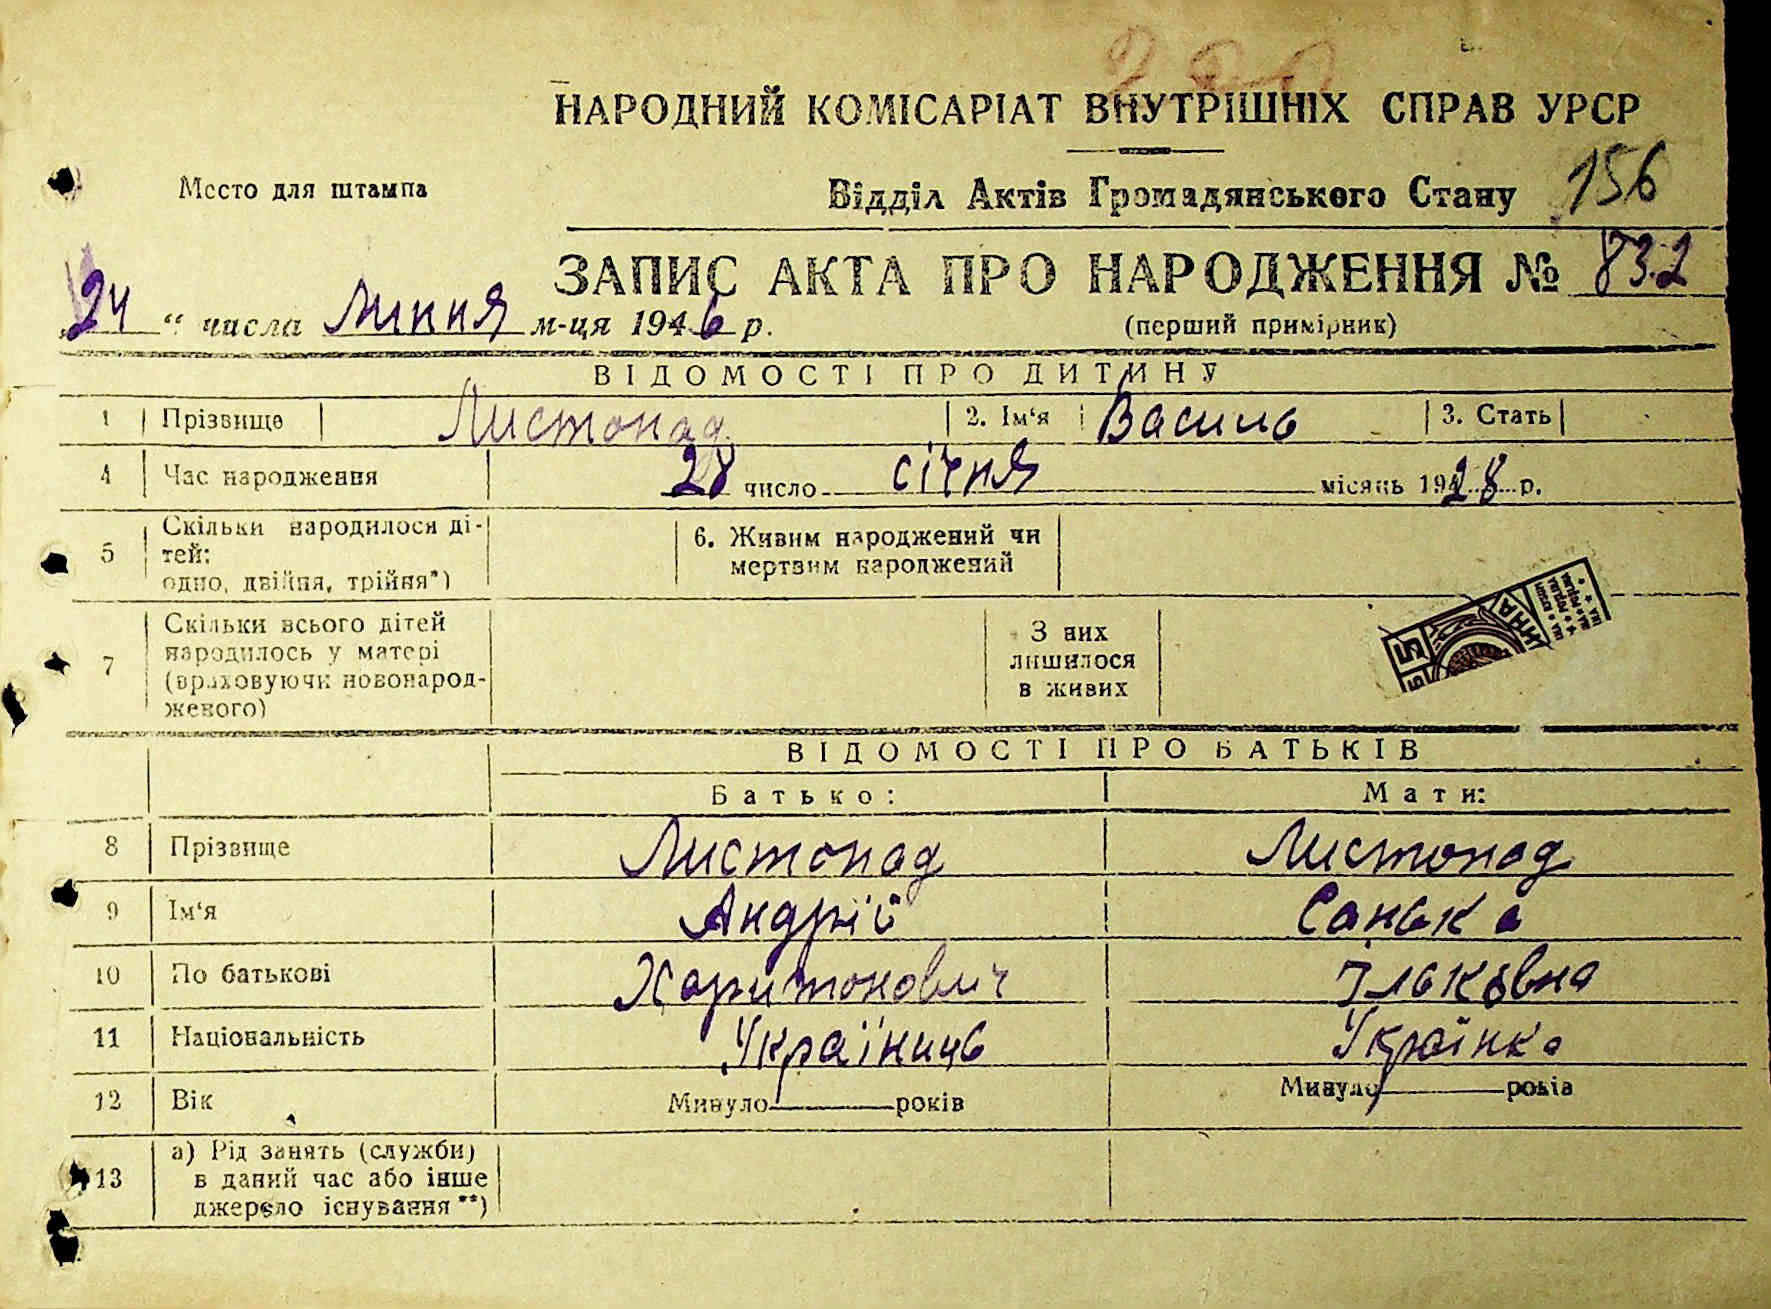 НАРОДНИЙ КОМІСАРІАТ ВНУТРІШНІХ СПРАВ УРСР
Место для штампа
Відділ Актів Громадянського Стану 156
ЗАПИС АКТА ПРО НАРОДЖЕННЯ № 832
24 “ числа липня м-ця 1946 р.
(перший примірник)
ВІДОМОСТІ ПРО ДИТИНУ
1 Прізвище Листопад 2. Ім‘я Василь 3. Стать
4 Час народження 28 число січня місяць 1928 р.
5 Скільки народилося ді-
тей:
одно, двійня, трійня*)
6. Живим народжений чи
мертвим народжений
7 Скільки всього дітей
народилось у матері
(враховуючи новонарод-
женого)
З них
лишилося
в живих
ВІДОМОСТІ ПРО БАТЬКІВ
Батько: Мати:
8 Прізвище Листопад Листопад
9 Ім‘я Андрій Санька
10 По батькові Харитонович Ільковна
11 Національність Українець Українка
12 Вік Минуло років Минуло років
13 а) Рід занять (служби)
в даний час або інше
джерело існування **)